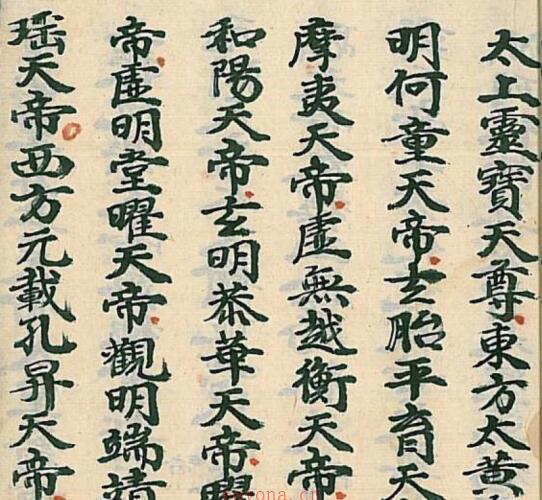 太上靈寶天尊東方太黃
明何童天帝玄胎平育天
摩夷天帝虛無越衡天帝
和陽天帝玄明恭華天帝曜
帝虛明堂曜天帝觀明端靖
瑶天帝西方元載孔昇天帝